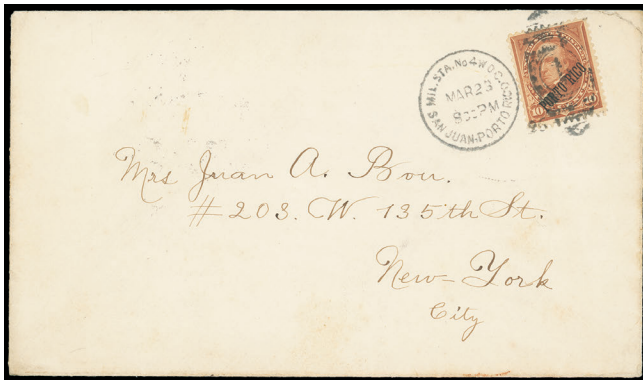 MIL. STA. No 4 W.O.C.O.
MAR 23
8 30 PM
SAN JUAN. PORTO RICO
PORTO RICO
10
Mrs Juan A. Bou.
# 203. W. 135th St.
New-York
City